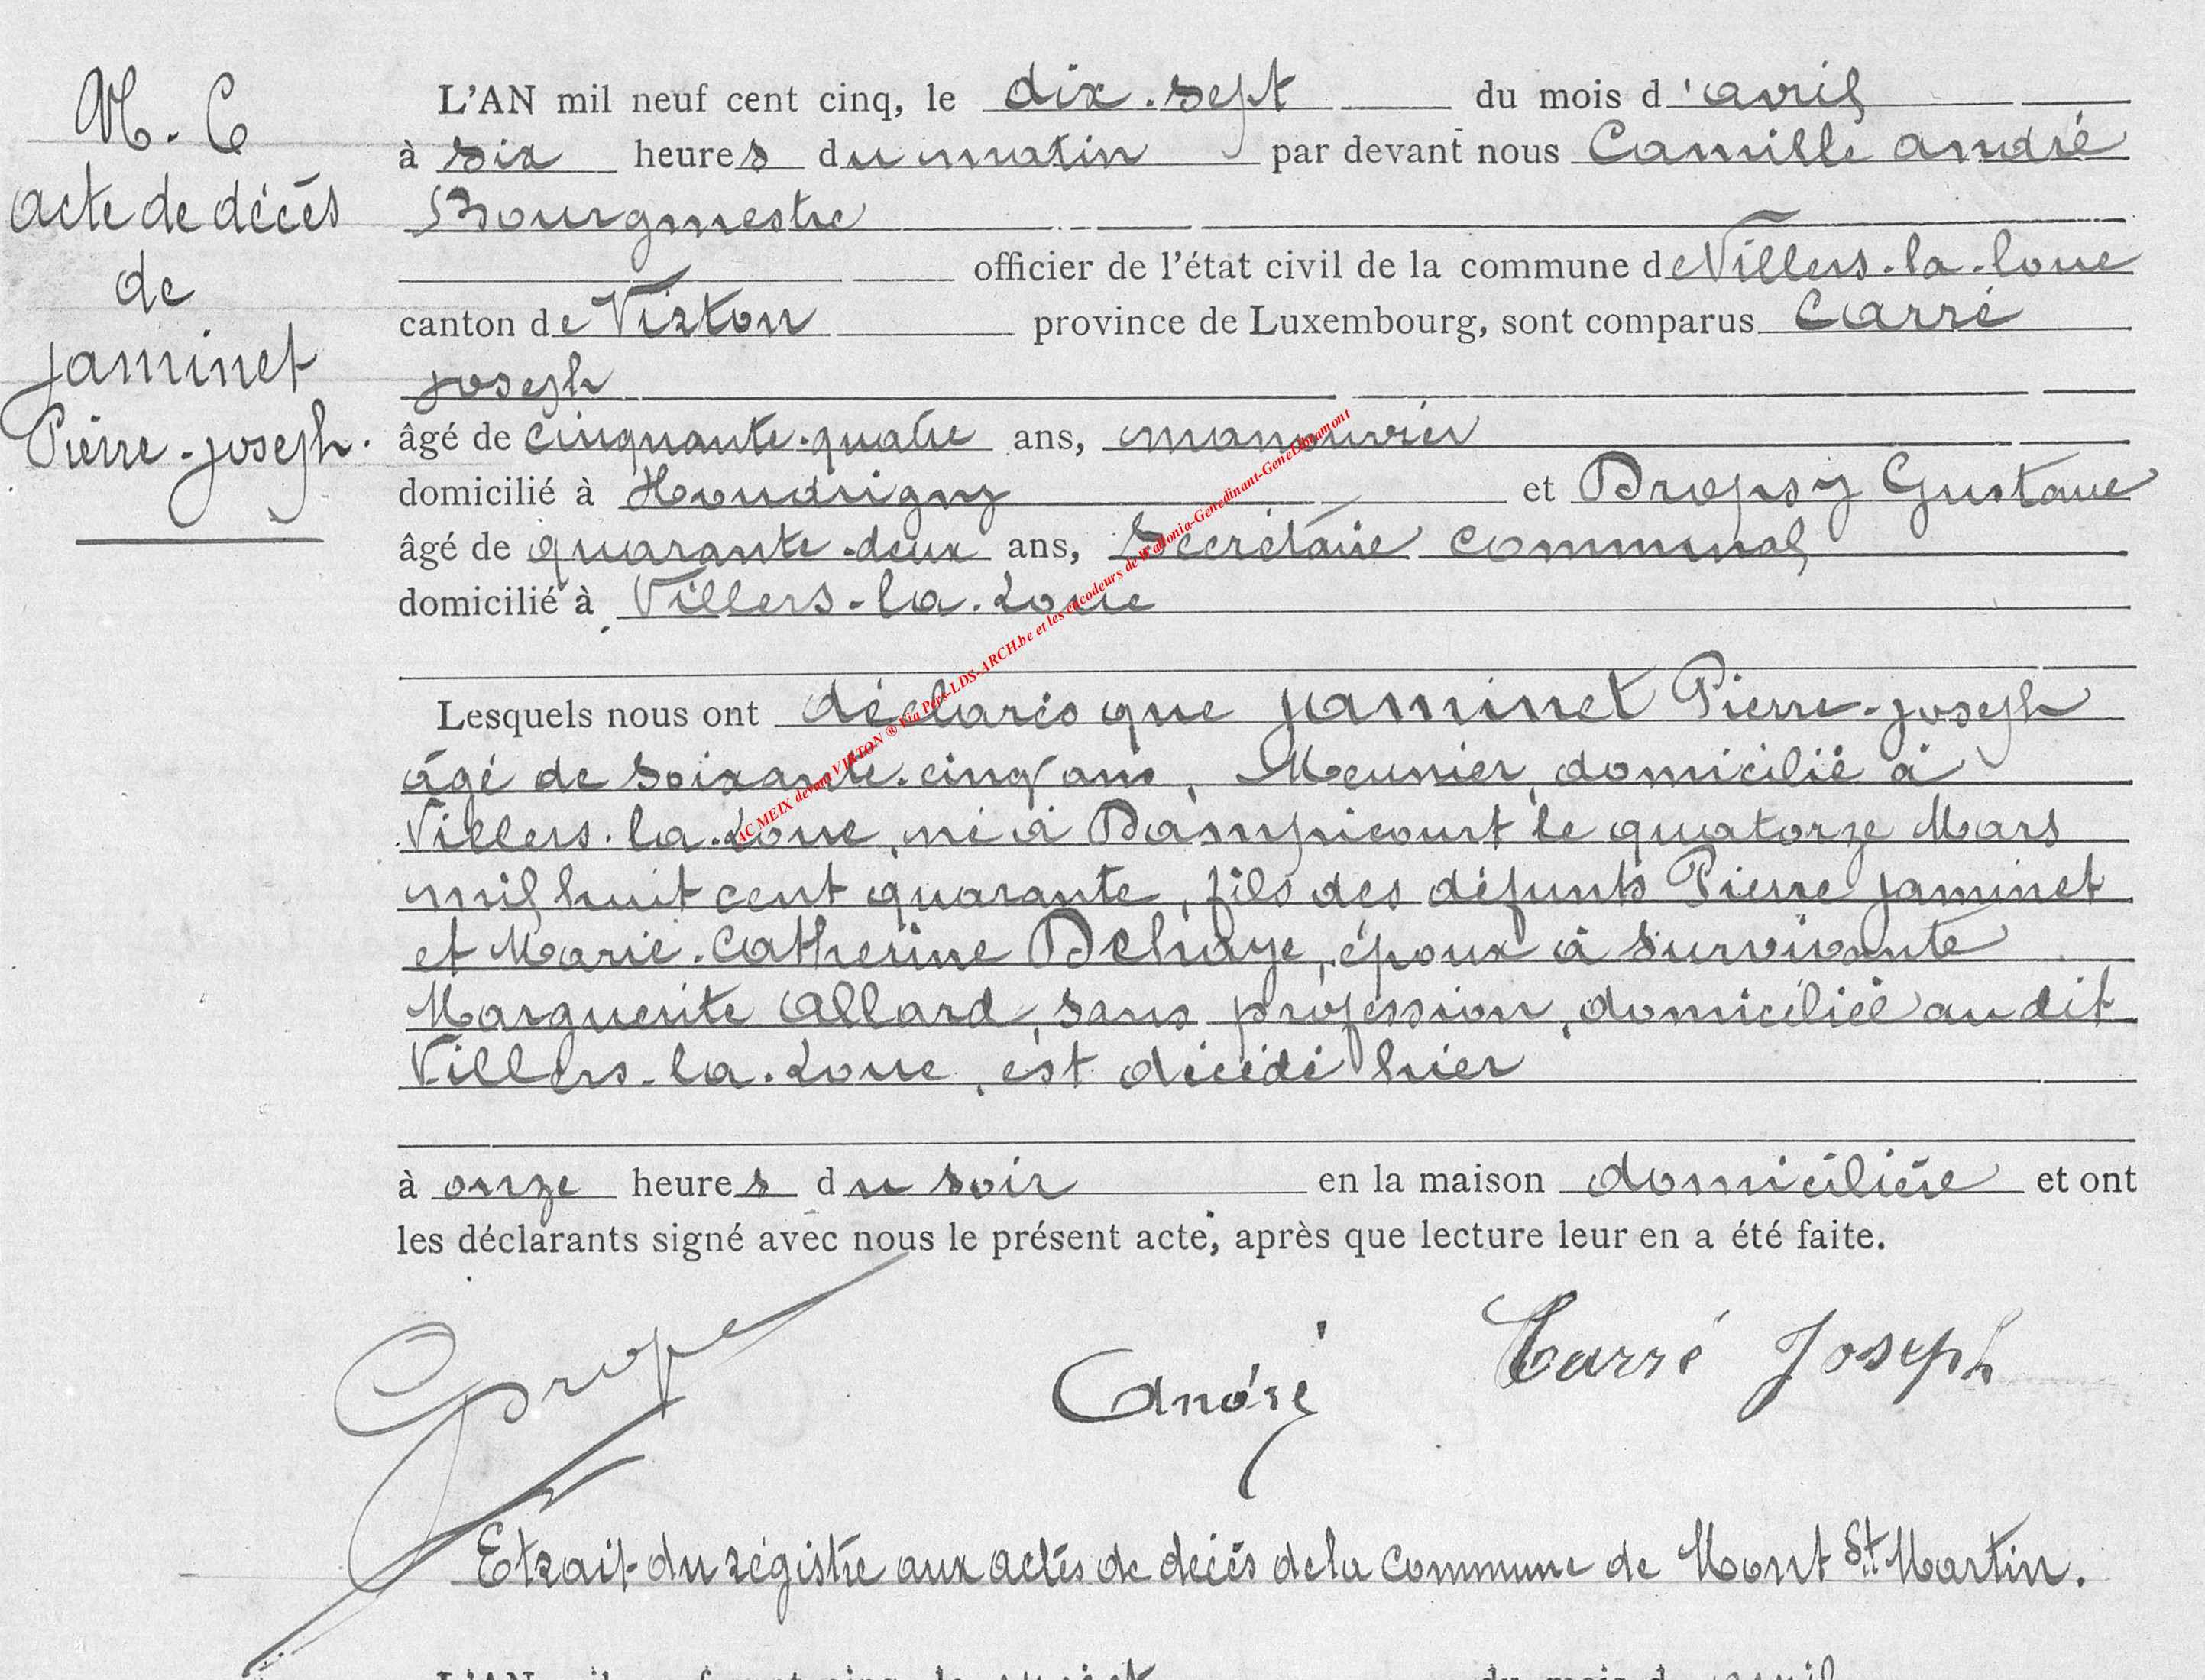 N. 6
acte de décés
de
Jaminet
Pierre-Joseph.
L'AN mil neuf cent cinq, le dix-sept du mois d'avril
à six heures du matin par devant nous Camille André
Bourgmestre
officier de l'état civil de la commune de Villers-la-loue
canton de Virton province de Luxembourg, sont comparus Carré
Joseph
âgé de cinquante-quatre ans, manouvrier
domicilié à Houdrigny et Dropsy Gustave
âgé de quarante-deux ans, Secrétaire communal
domicilié à Villers-la-Loue
Lesquels nous ont déclarés que Jaminet Pierre-Joseph
âgé de soixante-cinq ans, Meunier, domicilié à
Villers-la-Loue, né à Dampicourt le quatorze Mars
mil huit cent quarante, fils des défunts Pierre Jaminet
et Marie-Catherine Dehaye, époux à survivante
Marguerite Allard, sans profession, domiciliée au dit
Villers-la-Loue, est décédé hier
à onze heures du soir en la maison domiciliére et ont
les déclarants signé avec nous le présent acte, après que lecture leur en a été faite.
André Carré Joseph
Etrait du régistre aux actes de décés de la commune de Mont St Martin.
AC MEIX devant VIRTON ® Via Pers-LDS-ARCH.be et les encodeurs de Wallonia-Genedinant-GeneLibramont